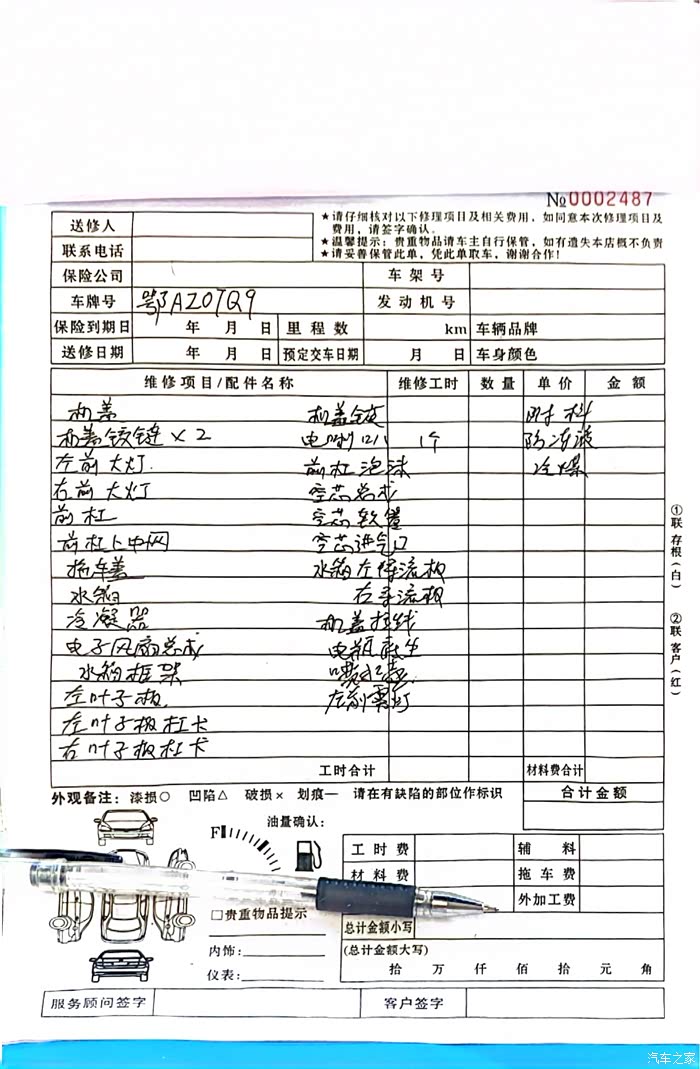 №0002487
送修人
联系电话
★请仔细核对以下修理项目及相关费用，如同意本次修理项目及
费用，请签字确认。
★温馨提示：贵重物品请车主自行保管，如有遗失本店概不负责
★请妥善保管此单，凭此单取车，谢谢合作！
保险公司 车架号
车牌号 鄂AZ07Q9 发动机号
保险到期日 年 月 日 里程数 km 车辆品牌
送修日期 年 月 日 预定交车日期 月 日 车身颜色
维修项目/配件名称 维修工时 数量 单价 金额
机盖 机盖锁 附料
机盖铰链×2 电喇叭 1个 防冻液
左前大灯 前杠泡沫 冷媒
右前大灯 空芯总成
前杠 空芯软管
前杠上中网 空芯进气口
拖车盖 水箱左导流板
水箱 右导流板
冷凝器 机盖拉线
电子风扇总成 电瓶
水箱框架 喷水壶
左叶子板 左前雾灯
左叶子板杠卡
右叶子板杠卡
工时合计 材料费合计
外观备注：漆损○ 凹陷△ 破损× 划痕— 请在有缺陷的部位作标识
合计金额
油量确认：
F
工时费 辅料
材料费 拖车费
外加工费
□贵重物品提示
总计金额小写
内饰：
(总计金额大写)
仪表：
拾 万 仟 佰 拾 元 角
服务顾问签字 客户签字
①联存根(白)
②联客户(红)
汽车之家